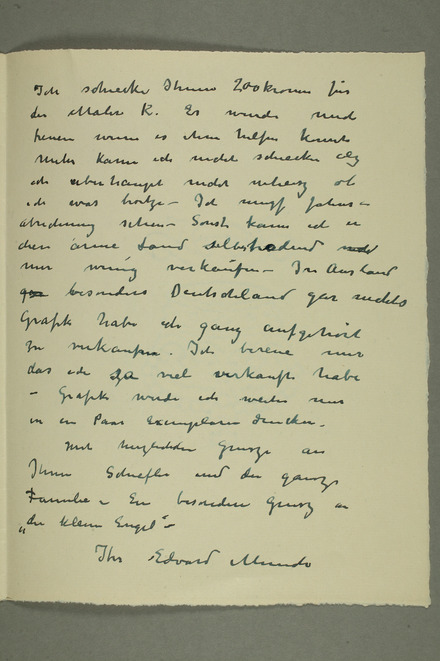 Ich schicke Ihnen 200 kronen für
der Maler K. Es würde mich
freuen wenn es ihm helfen könnte
Mehr kann ich nicht schicken
ich überhaupt nicht ob
ich was Ich muss
Sonst kann ich in
dies arme Land selbstredend
nur wenig verkaufen – Im Ausland
besonders Deutschland gar nichts
Grafik habe ich ganz aufgehört
zu verkaufen. Ich bereue nur
das ich zu viel verkauft habe
– Grafik werde ich weiter nur
in ein Paar Exemplaren drucken.
Mit herzlichen Grusze an
Ihnen Schiefler und der ganze
Familie – Ein besondere Grusz an
„die kleine Engel" –
Ihr Edvard Munch